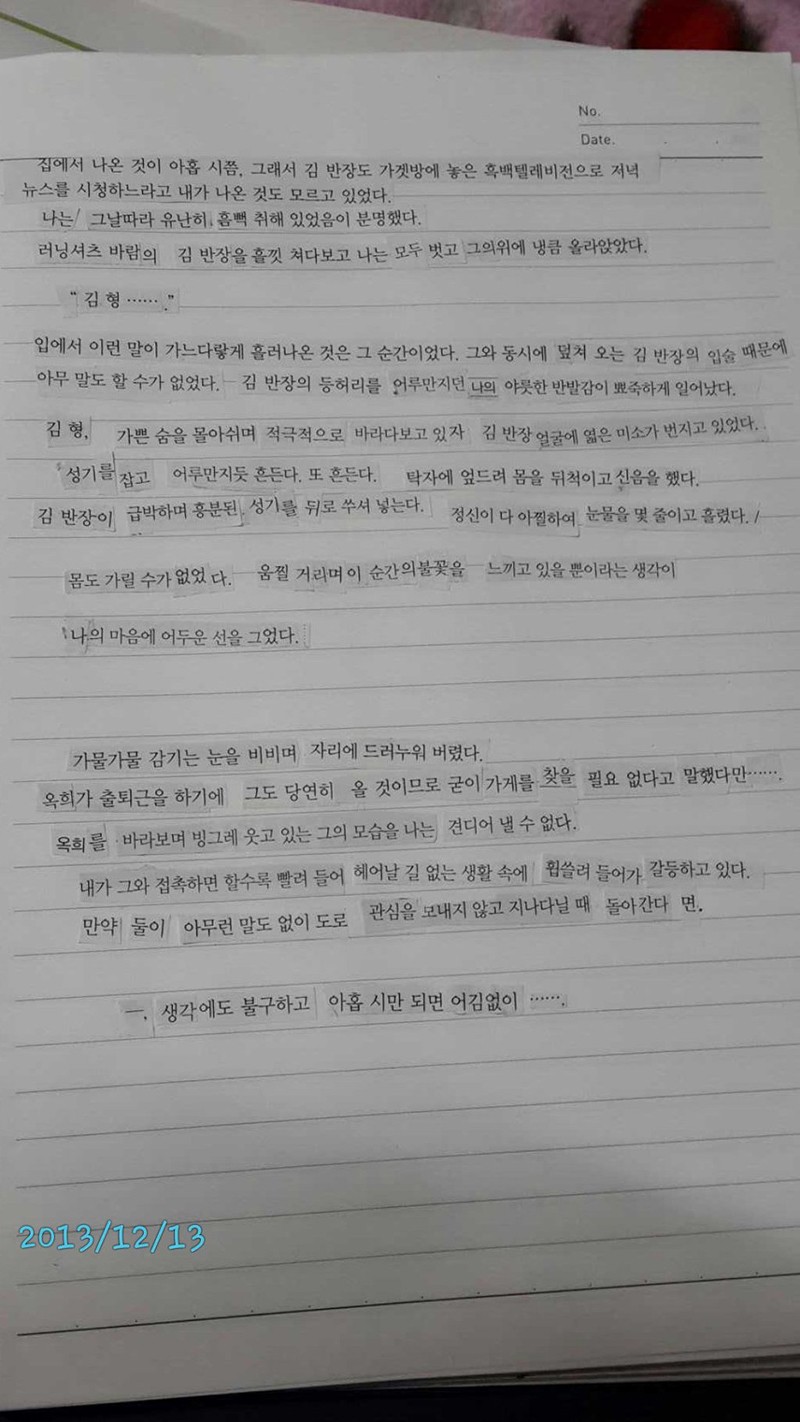 No.
Date.
집에서 나온 것이 아홉 시쯤, 그래서 김 반장도 가겟방에 놓은 흑백텔레비전으로 저녁
뉴스를 시청하느라고 내가 나온 것도 모르고 있었다.
나는 그날따라 유난히 흠뻑 취해 있었음이 분명했다.
러닝셔츠 바람의 김 반장을 흘낏 쳐다보고 나는 모두 벗고 그의위에 냉큼 올라앉았다.
“ 김 형 ……. ”
입에서 이런 말이 가느다랗게 흘러나온 것은 그 순간이었다. 그와 동시에 덮쳐 오는 김 반장의 입술 때문에
아무 말도 할 수가 없었다. 김 반장의 등허리를 어루만지던 나의 야릇한 반발감이 뾰죽하게 일어났다.
김 형, 가쁜 숨을 몰아쉬며 적극적으로 바라다보고 있자 김 반장 얼굴에 엷은 미소가 번지고 있었다.
성기를 잡고 어루만지듯 흔든다. 또 흔든다. 탁자에 엎드려 몸을 뒤척이고 신음을 했다.
김 반장이 급박하며 흥분된 성기를 뒤로 쑤셔 넣는다. 정신이 다 아찔하여 눈물을 몇 줄이고 흘렸다.
몸도 가릴 수가 없었다. 움찔 거리며 이 순간의불꽃을 느끼고 있을 뿐이라는 생각이
나의 마음에 어두운 선을 그었다.
가물가물 감기는 눈을 비비며 자리에 드러누워 버렸다.
옥희가 출퇴근을 하기에 그도 당연히 올 것이므로 굳이 가게를 찾을 필요 없다고 말했다만…….
옥희를 바라보며 빙그레 웃고 있는 그의 모습을 나는 견디어 낼 수 없다.
내가 그와 접촉하면 할수록 빨려 들어 헤어날 길 없는 생활 속에 휩쓸려 들어가 갈등하고 있다.
만약 둘이 아무런 말도 없이 도로 관심을 보내지 않고 지나다닐 때 돌아간다 면.
ㅡ. 생각에도 불구하고 아홉 시만 되면 어김없이 …….
2013/12/13